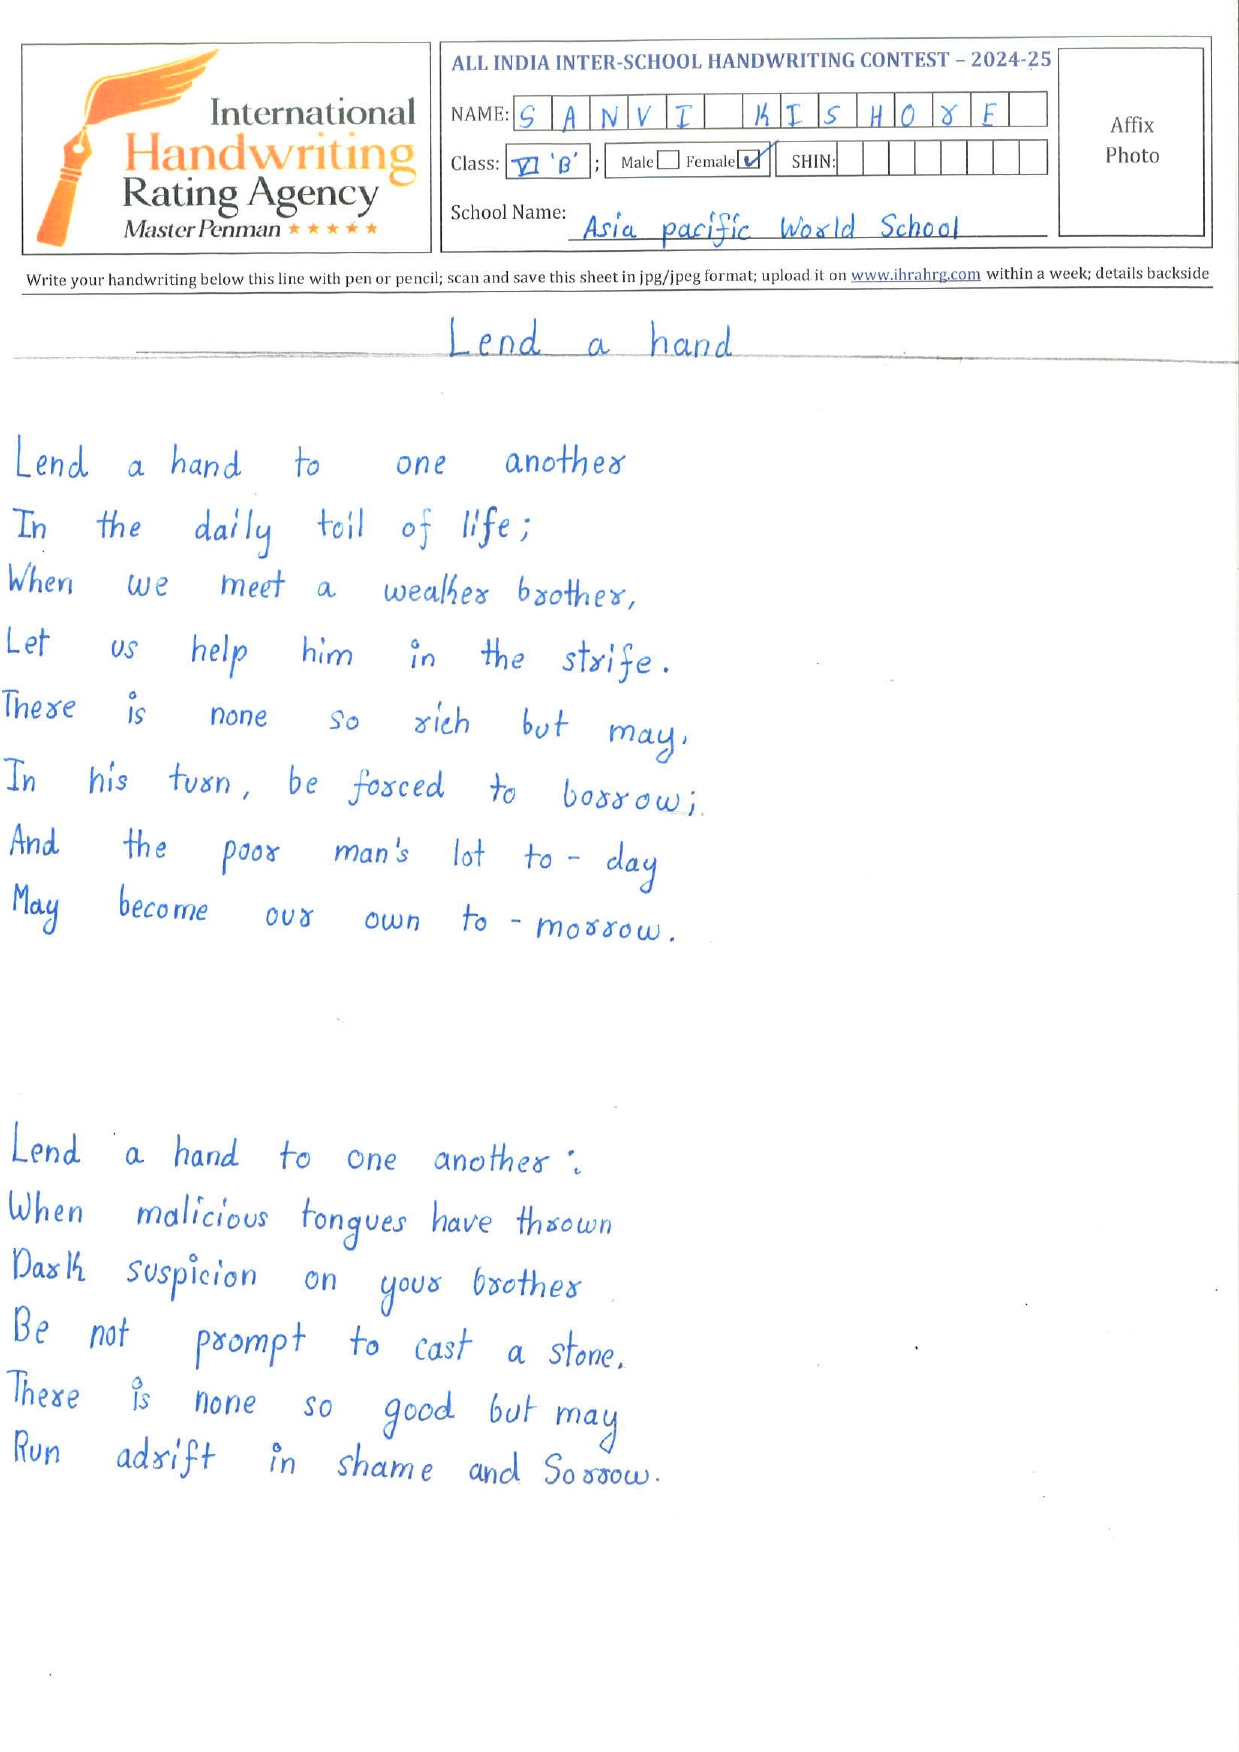 International
Handwriting
Rating Agency
Master Penman
ALL INDIA INTER-SCHOOL HANDWRITING CONTEST – 2024-25
NAME: SANVI KISHORE
Class: VI 'B' ; Male Female ✓ SHIN:
School Name: Asia pacific World School
Affix
Photo
Write your handwriting below this line with pen or pencil; scan and save this sheet in jpg/jpeg format; upload it on www.ihrahrg.com within a week; details backside
Lend a hand
Lend a hand to one another
In the daily toil of life;
When we meet a weaker brother,
Let us help him in the strife.
There is none so rich but may,
In his turn, be forced to borrow;
And the poor man's lot to - day
May become our own to - morrow.
Lend a hand to one another :
When malicious tongues have thrown
Dark suspicion on your brother
Be not prompt to cast a stone.
There is none so good but may
Run adrift in shame and Sorrow.